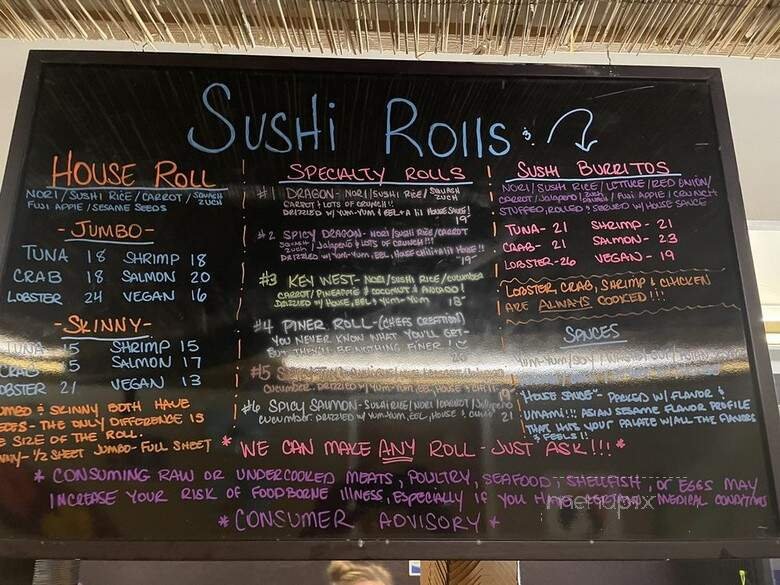 SUSHI ROLLS &
HOUSE ROLL
NORI/SUSHI RICE/CARROT/SQUASH
ZUCH
FUJI APPLE/SESAME SEEDS
- JUMBO -
TUNA 18 SHRIMP 18
CRAB 18 SALMON 20
LOBSTER 24 VEGAN 16
- SKINNY -
TUNA 15 SHRIMP 15
CRAB 15 SALMON 17
LOBSTER 21 VEGAN 13
JUMBO & SKINNY BOTH HAVE
THE ONLY DIFFERENCE IS
SIZE OF THE ROLL.
SKINNY-1/2 SHEET JUMBO-FULL SHEET
SPECIALTY ROLLS
#1 DRAGON-NORI/SUSHI RICE/SQUASH
ZUCH
CARROT & LOTS OF CRUNCH!!
DRIZZLED W/YUM-YUM & EEL + A lil HOUSE SAUCE!
19
#2 SPICY DRAGON-NORI/SUSHI RICE/CARROT
SQUASH
ZUCH/Jalapeño & LOTS OF CRUNCH!!!
DRIZZLED W/YUM-YUM, EEL, HOUSE CHILI + A lil HOUSE!!
19
#3 KEY WEST-NORI/SUSHI RICE/CUCUMBER
CARROT/PINEAPPLE & COCONUT & AVOCADO!
DRIZZLED W/HOUSE, EEL & YUM-YUM 18
#4 PINER ROLL-(CHEFS CREATION)
YOU NEVER KNOW WHAT YOU'LL GET-
BUT THEY'LL BE NOTHING FINER! 
20
#5
CUCUMBER. DRIZZLED W/YUM-YUM, EEL, HOUSE & 19
#6 SPICY SALMON-SUSHI RICE/NORI/CARROT/Jalapeño
CUCUMBER DRIZZLED W/YUM-YUM, EEL, HOUSE & CHILI 21
SUSHI BURRITOS
NORI/SUSHI RICE/LETTUCE/RED ONION/
CARROT/Jalapeño/SQUASH
ZUCH/FUJI APPLE/CRUNCH
STUFFED, ROLLED & SERVED W/HOUSE SAUCE
TUNA-21 SHRIMP-21
CRAB-21 SALMON-23
LOBSTER-26 VEGAN-19
LOBSTER, CRAB, SHRIMP & CHICKEN
ARE ALWAYS COOKED!!!
SAUCES
YUM-YUM/SOY/WASABI
"HOUSE SAUCE"-PACKED W/FLAVOR &
UMAMI!!! ASIAN SESAME FLAVOR PROFILE
THAT HITS YOUR PALATE W/ALL THE FLAVORS
& FEELS!!
* WE CAN MAKE ANY ROLL-JUST ASK!!! *
* CONSUMING RAW OR UNDERCOOKED MEATS, POULTRY, SEAFOOD, SHELLFISH, OR EGGS MAY
INCREASE YOUR RISK OF FOODBORNE ILLNESS, ESPECIALLY IF YOU HAVE CERTAIN MEDICAL CONDITIONS
* CONSUMER ADVISORY *
menupix